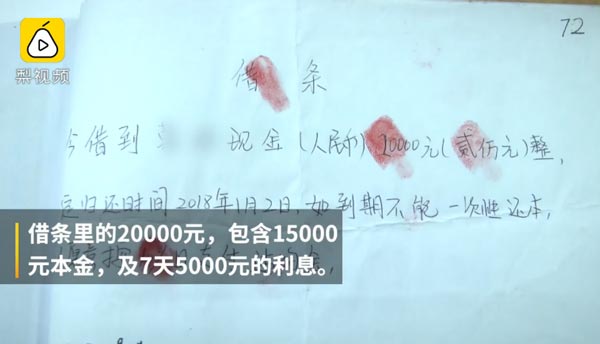 72
梨视频
借 条
今借到 现金(人民币)20000元(贰佰元)整,
定归还时间2018年1月2日,如到期不能一次性还本,
借条里的20000元，包含15000
元本金，及7天5000元的利息。